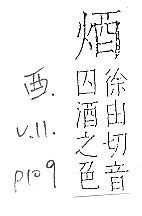 徐由切音
囚酒之色
酉.
V.11.
p109